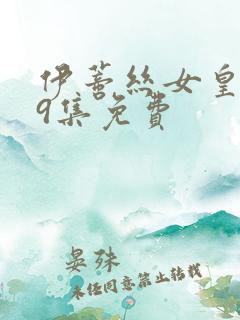 伊蓦丝女皇
9集免费
晏殊
未经同意禁止转载